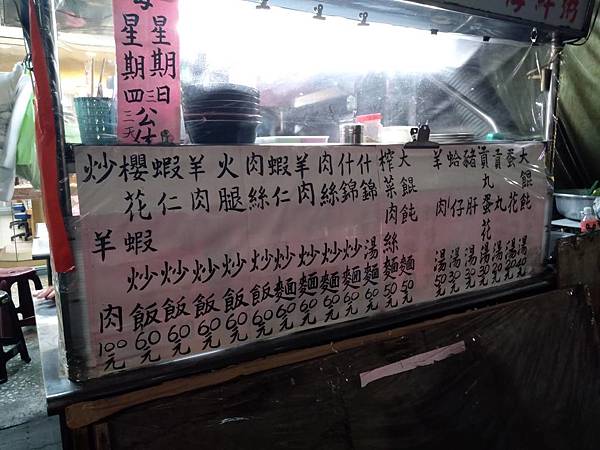 海鮮粥
每星期日
星期四
三天公休
大餛飩湯40元
蛋花湯20元
貢丸湯20元
貢丸蛋花湯30元
豬肝湯30元
蛤仔湯30元
羊肉湯50元
大餛飩麵50元
榨菜肉絲麵50元
什錦湯麵60元
什錦炒麵60元
肉絲炒麵60元
羊肉炒麵60元
蝦仁炒麵60元
肉絲炒飯60元
火腿炒飯60元
羊肉炒飯60元
蝦仁炒飯60元
櫻花蝦炒飯60元
炒羊肉100元